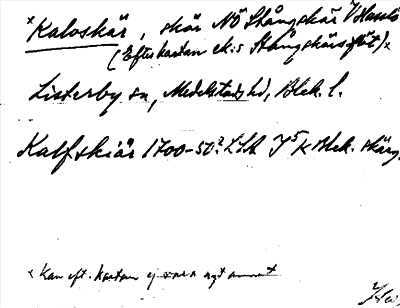 ×Kaloskär, skär NÖ Stångskär V Hasslö
(Efter kartan ek:s Stångskärs
Listerby sn, Medelstads hd, Blek. l.
Kalfskiär 1700-50? LSA J5 k Blek. skärg.
× Kan eft. kartan ej vara ngt annat